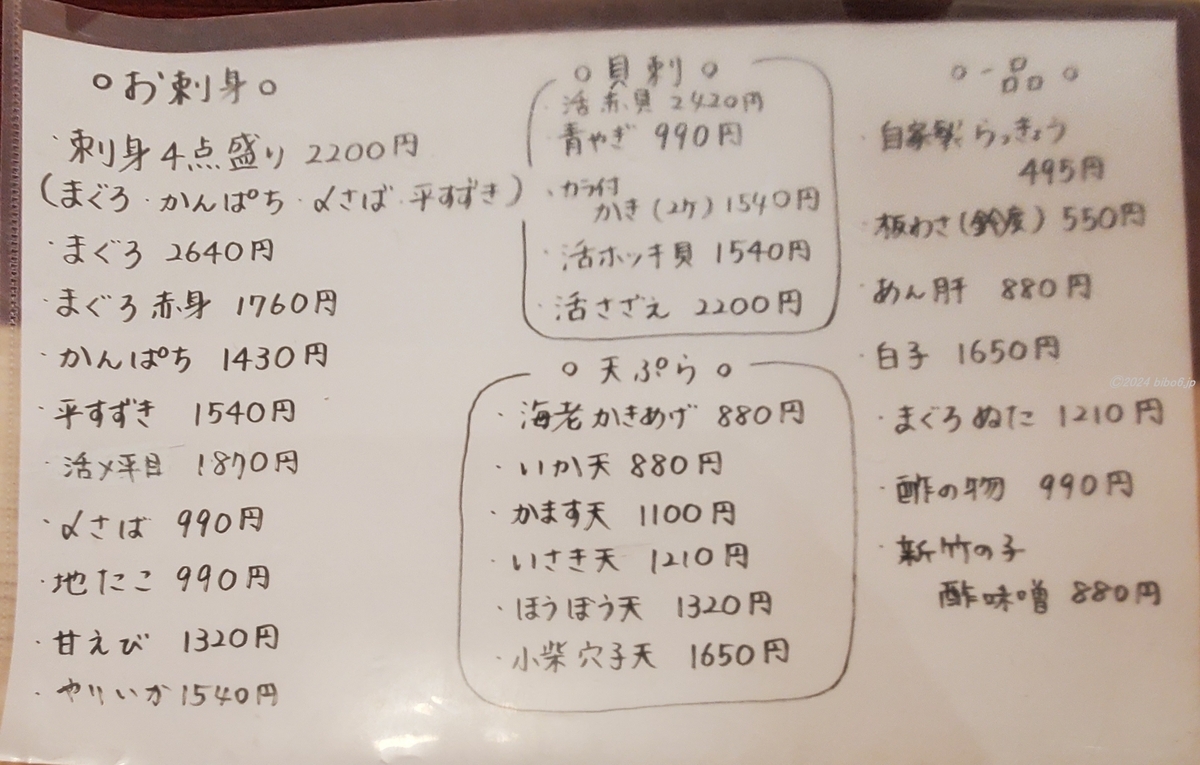 ○お刺身○
・刺身4点盛り 2200円
(まぐろ・かんぱち・〆さば・平すずき)
・まぐろ 2640円
・まぐろ赤身 1760円
・かんぱち 1430円
・平すずき 1540円
・活〆平目 1870円
・〆さば 990円
・地たこ 990円
・甘えび 1320円
・やりいか 1540円
○貝刺○
・活赤貝 2420円
・青やぎ 990円
・カラ付
かき(2ケ) 1540円
・活ホッキ貝 1540円
・活さざえ 2200円
○天ぷら○
・海老かきあげ 880円
・いか天 880円
・かます天 1100円
・いさき天 1210円
・ほうぼう天 1320円
・小柴穴子天 1650円
○一品○
・自家製らっきょう
495円
・板わさ(鈴廣) 550円
・あん肝 880円
・白子 1650円
・まぐろぬた 1210円
・酢の物 990円
・新竹の子
酢味噌 880円
©2024 bibo6.jp